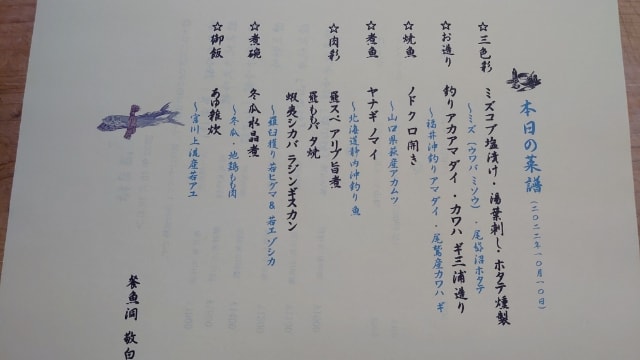 本日の菜譜 (二〇二二年一〇月一〇日)
☆三色彩 ミズコブ塩漬け・湯葉刺し・ホタテ燻製
～ミズ(ウワバミソウ)・尾岱沼ホタテ
☆お造り 釣りアカアマダイ・カワハギ三浦造り
～福井沖釣りアマダイ・尾鷲産カワハギ
☆焼魚 ノドクロ開き
～山口県萩産アカムツ
☆煮魚 ヤナギノマイ
～北海道静内沖釣り魚
☆肉彩 羆スペアリブ旨煮
羆ももバタ焼
蝦夷シカバラジンギスカン
～羅臼獲り若ヒグマ&若エゾシカ
☆煮碗 冬瓜水晶煮
～冬瓜・地鶏もも肉
☆御飯 あゆ雑炊
～宮川上流産若アユ
餐魚洞 敬白